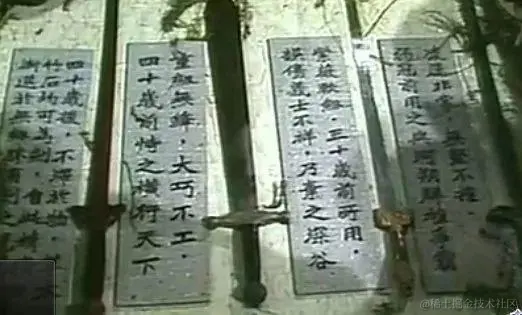 凌厲非常，無堅不摧，
弱冠前用之與河朔群雄爭
紫薇軟劍，三十歲前所用，
誤傷義士不祥，乃棄之深谷
重劍無鋒，大巧不工，
四十歲前恃之橫行天下
四十歲後，不滯於物，
竹石均可為劍，此精
漸進於無劍勝有劍之
@稀土掘金技术社区